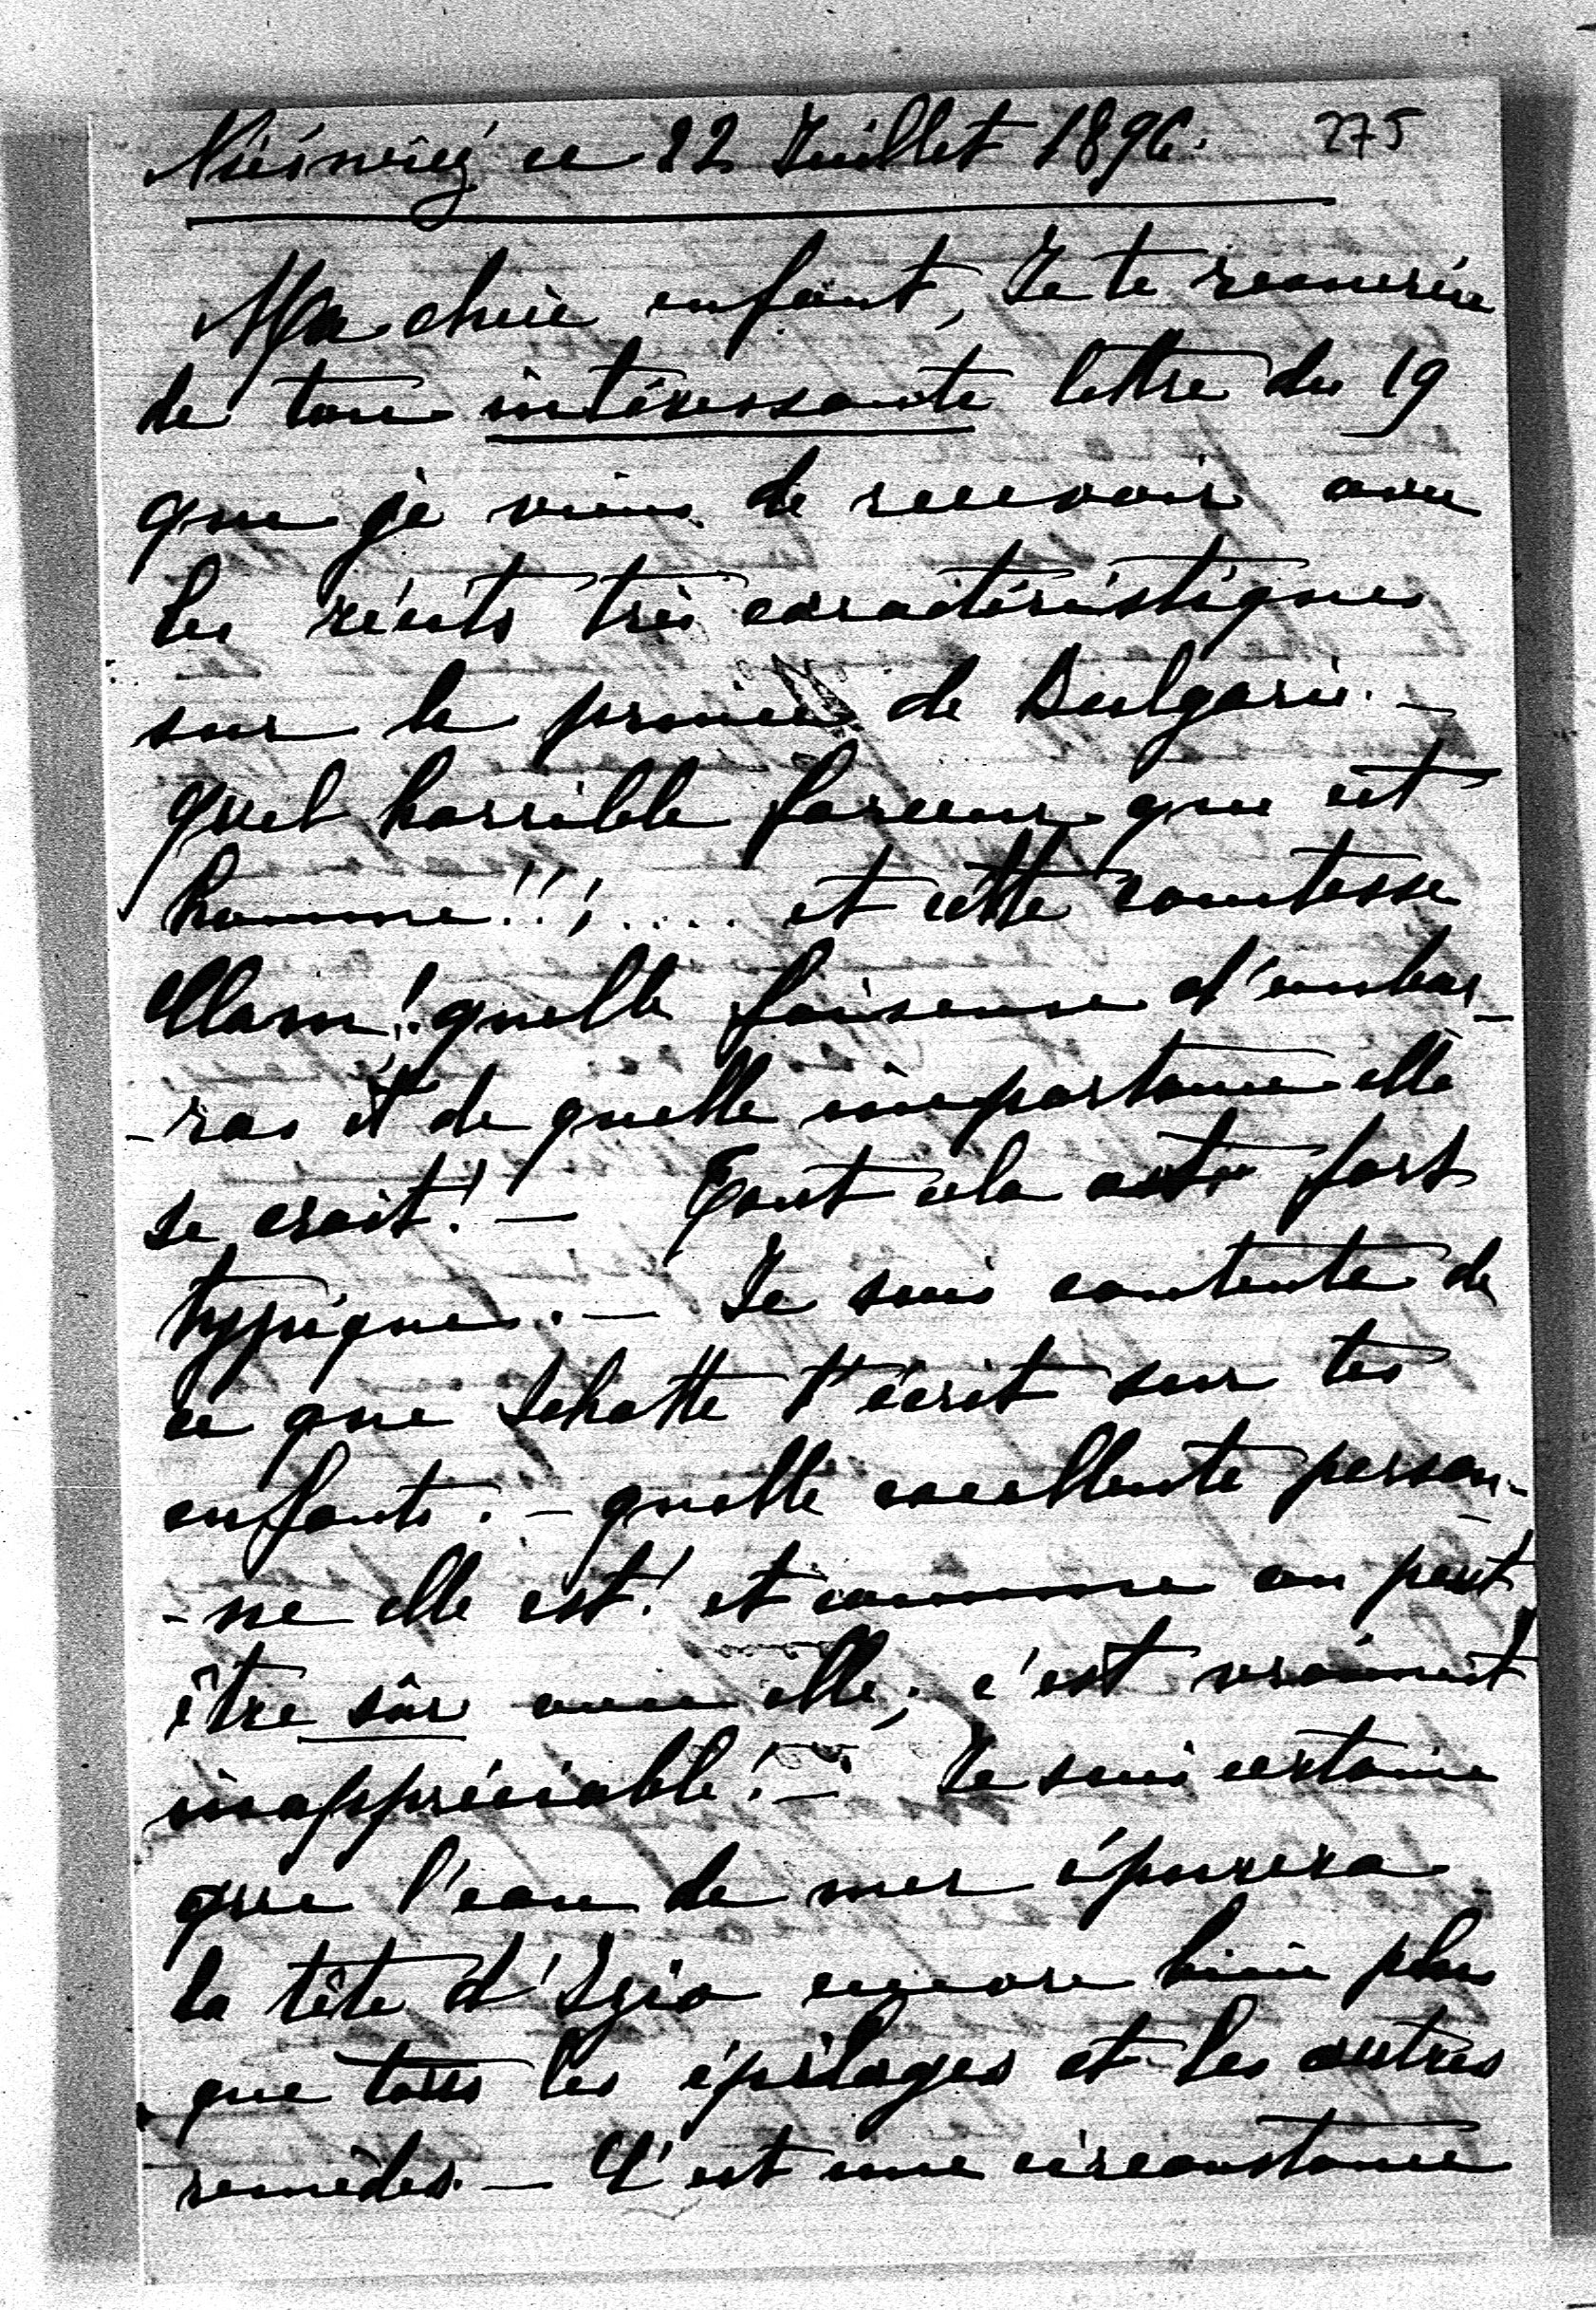 Nieśwież ce 22 Juillet 1896. 275
Ma chère enfant, Je te remercie
de ton intéressante lettre du 19
que je viens de recevoir avec
les récits très caractéristiques
sur le prince de Bulgarie. –
quel horrible farceur que cet
homme!!! .... et cette comtesse
quelle faiseuse d'embar-
-ras et de quelle importance elle
se croit! – Tout cela est fort
typique. – Je suis contente de
ce que Schotte t'écrit sur tes
enfants. – quelle excellente person-
-ne elle est! et comme on peut
être sûr avec elle; c'est vraiment
inappréciable! – Je suis certaine
que l'eau de mer épurera
la tête d'Izio encore bien plus
que tous les épilages et les autres
remèdes. – C'est une circonstance